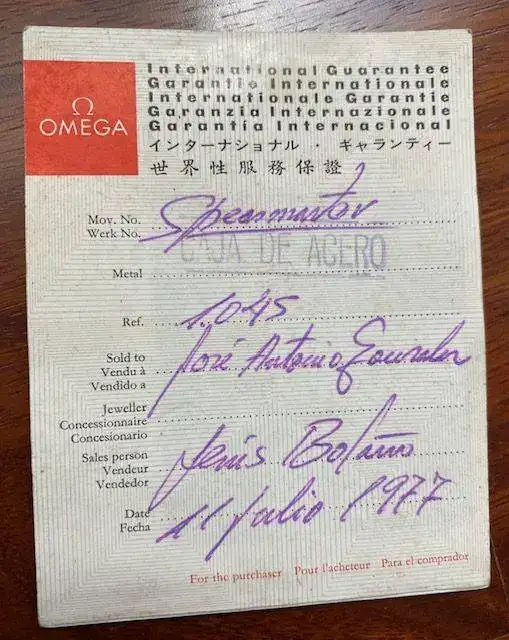 International Guarantee
Garantie Internationale
Internationale Garantie
Garanzia Internazionale
Garantía Internacional
インターナショナル・ギャランティー
世界性服務保證
Ω
OMEGA
Mov. No.
Werk No.
Speedmaster
CAJA DE ACERO
Metal
Ref. 1.045
Sold to
Vendu à
Vendido a
José Antonio
Jeweller
Concessionnaire
Concesionario
Sales person
Vendeur
Vendedor
Bolaño
Date
Fecha
11 Julio 1977
For the purchaser Pour l'acheteur Para el comprador